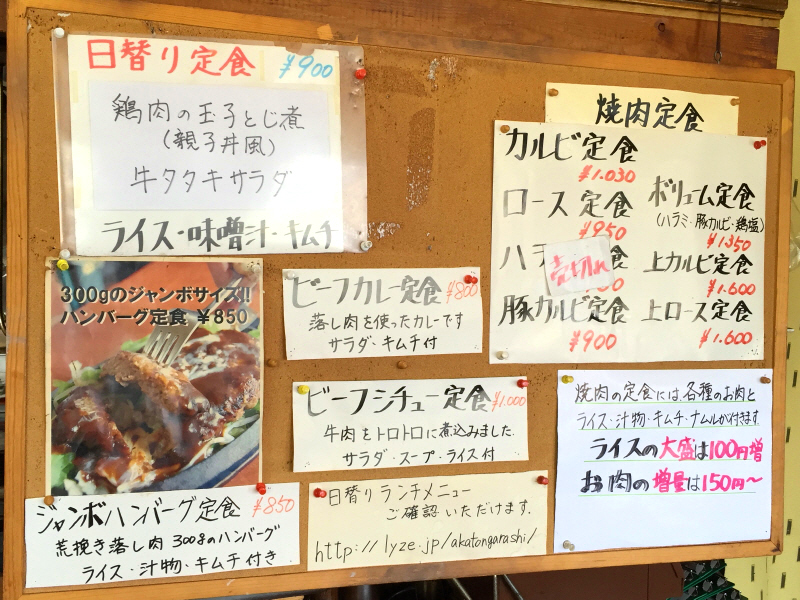 日替り定食 ¥900
鶏肉の玉子とじ煮
(親子丼風)
牛タタキサラダ
ライス・味噌汁・キムチ
300gのジャンボサイズ!!
ハンバーグ定食 ¥850
ジャンボハンバーグ定食 ¥850
荒挽き落し肉 300gのハンバーグ
ライス・汁物・キムチ付き
ビーフカレー定食 ¥800
落し肉を使ったカレーです
サラダ・キムチ付
ビーフシチュー定食 ¥1.000
牛肉をトロトロに煮込みました
サラダ・スープ・ライス付
日替りランチメニュー
ご確認いただけます.
http://lyze.jp/akatongarashi/
焼肉定食
カルビ定食
¥1.030
ロース定食
¥950
ハラ
売切れ
豚カルビ定食
¥900
ボリューム定食
(ハラミ・豚カルビ・鶏塩)
¥1350
上カルビ定食
¥1.600
上ロース定食
¥1.600
焼肉の定食には、各種のお肉と
ライス・汁物・キムチ・ナムルが付きます
ライスの大盛は100円増
お肉の増量は150円〜